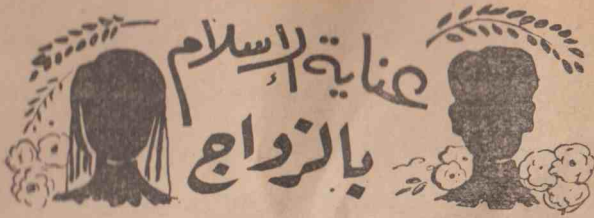 عناية الإسلام
بالزواج